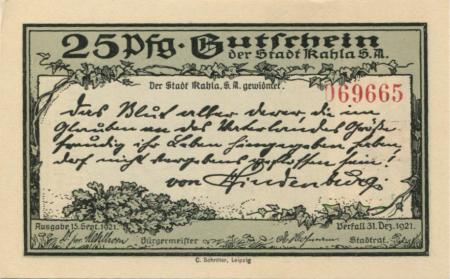 25 Pfg. Gutschein
der Stadt Kahla S.A.
Der Stadt Kahla, S.A. gewidmet.
069665
Das Blut aller derer, die im
Glauben an des Vaterlandes Größe
freudig ihr Leben hingegeben haben,
darf nicht vergebens geflossen sein!
von Hindenburg.
Ausgabe 15. Sept. 1921.
Verfall 31. Dez. 1921.
Bürgermeister
Stadtrat.
C. Schröter, Leipzig